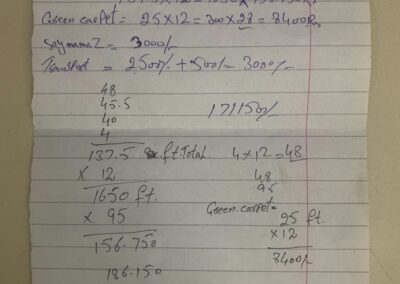 Green carpet = 25 x 12 = 300 x 28 = 8400Rs
= 3000/-
Transport = 2500/- + 500/- = 3000/-
48
45.5
40
4
171150/-
137.5 ft. Total
4 x 12 = 48
x 12
48
95
1650 ft.
Green. carpet =
x 95
25 ft.
x 12
156.750
8400/-
186.150